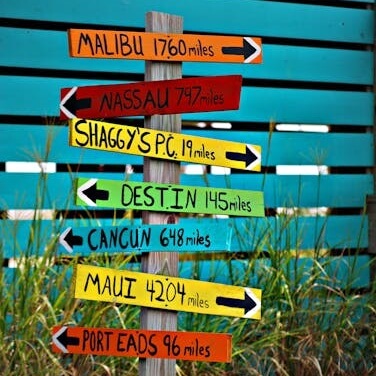 MALIBU 1760 miles
NASSAU 797 miles
SHAGGY'S P.C. 19 miles
DESTIN 145 miles
CANCUN 648 miles
MAUI 4204 miles
PORT EADS 96 miles